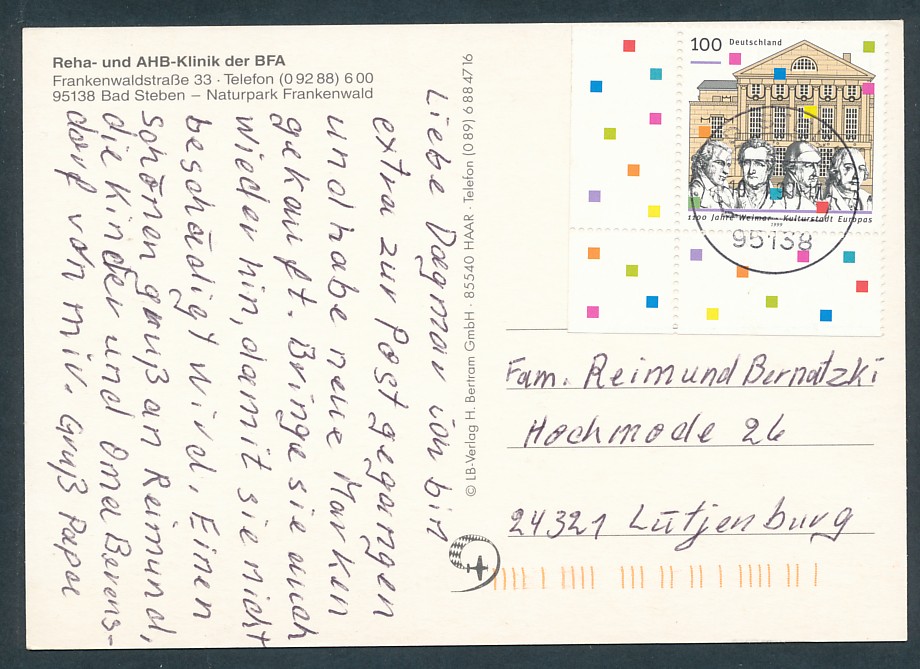 Reha- und AHB-Klinik der BFA
Frankenwaldstraße 33 · Telefon (0 92 88) 6 00
95138 Bad Steben – Naturpark Frankenwald
Liebe Dagmar ich bin
extra zur Post gegangen
und habe neue Marken
gekauft. Bringe sie auch
wieder hin, damit sie nicht
beschädigt wird, Einen
schönen gruß an Reimund,
die Kinder und Oma Berens-
dorf von mir. Gruß Papa
© LB-Verlag H. Bertram GmbH · 85540 HAAR · Telefon (0 89) 6 88 47 16
100 Deutschland
1100 Jahre Weimar · Kulturstadt Europas
1999
95138
Fam. Reimund Bernatzki
Hochmode 26
24321 Lütjenburg